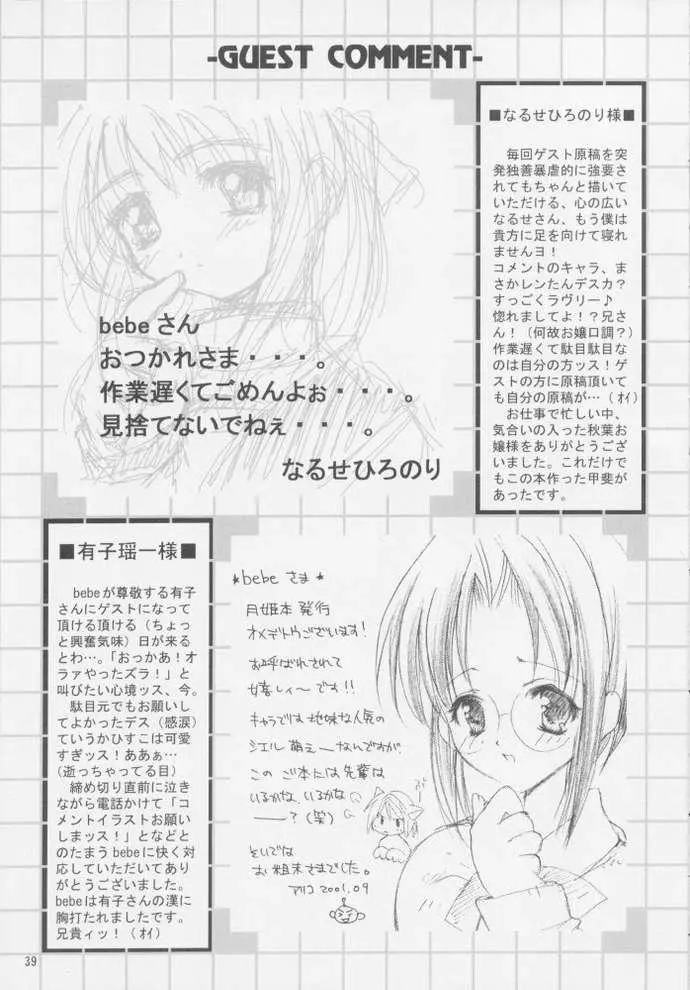 -GUEST COMMENT-
■なるせひろのり様■
毎回ゲスト原稿を突
発独善暴虐的に強要さ
れてもちゃんと描いて
いただける、心の広い
なるせさん、もう僕は
貴方に足を向けて寝れ
ませんヨ！
コメントのキャラ、ま
さかレンたんデスカ？
すっごくラヴリー♪
惚れましてよ！？兄さ
ん！（何故お嬢口調？）
作業遅くて駄目駄目な
のは自分の方ッス！ゲ
ストの方に原稿頂いて
も自分の原稿が…（ｵｲ）
お仕事で忙しい中、
気合いの入った秋葉お
嬢様をありがとうござ
いました。これだけで
もこの本作った甲斐が
あったです。
bebeさん
おつかれさま・・・。
作業遅くてごめんよぉ・・・。
見捨てないでねぇ・・・。
なるせひろのり
■有子瑶一様■
bebeが尊敬する有子
さんにゲストになって
頂ける頂ける（ちょっ
と興奮気味）日が来る
とわ…。「おっかあ！オ
ラァやったズラ！」と
叫びたい心境ッス、今。
駄目元でもお願いし
てよかったデス（感涙）
ていうかひすこは可愛
すぎッス！ああぁ…
（逝っちゃってる目）
締め切り直前に泣き
ながら電話かけて「コ
メントイラストお願い
しまッス！」となどと
のたまうbebeに快く対
応していただいてあり
がとうございました。
bebeは有子さんの漢に
胸打たれましたです。
兄貴ィッ！（ｵｲ）
*bebeさま*
月姫本発行
オメデトウございます！
お呼ばれされて
嬉しィ〜です!!
キャラでは地味な人気の
シエル萌え〜なんですが、
このご本には先輩は
いるかな、いるかな
ー？（笑）
といいでは
お粗末さまでした。
アリコ 2001.09
39